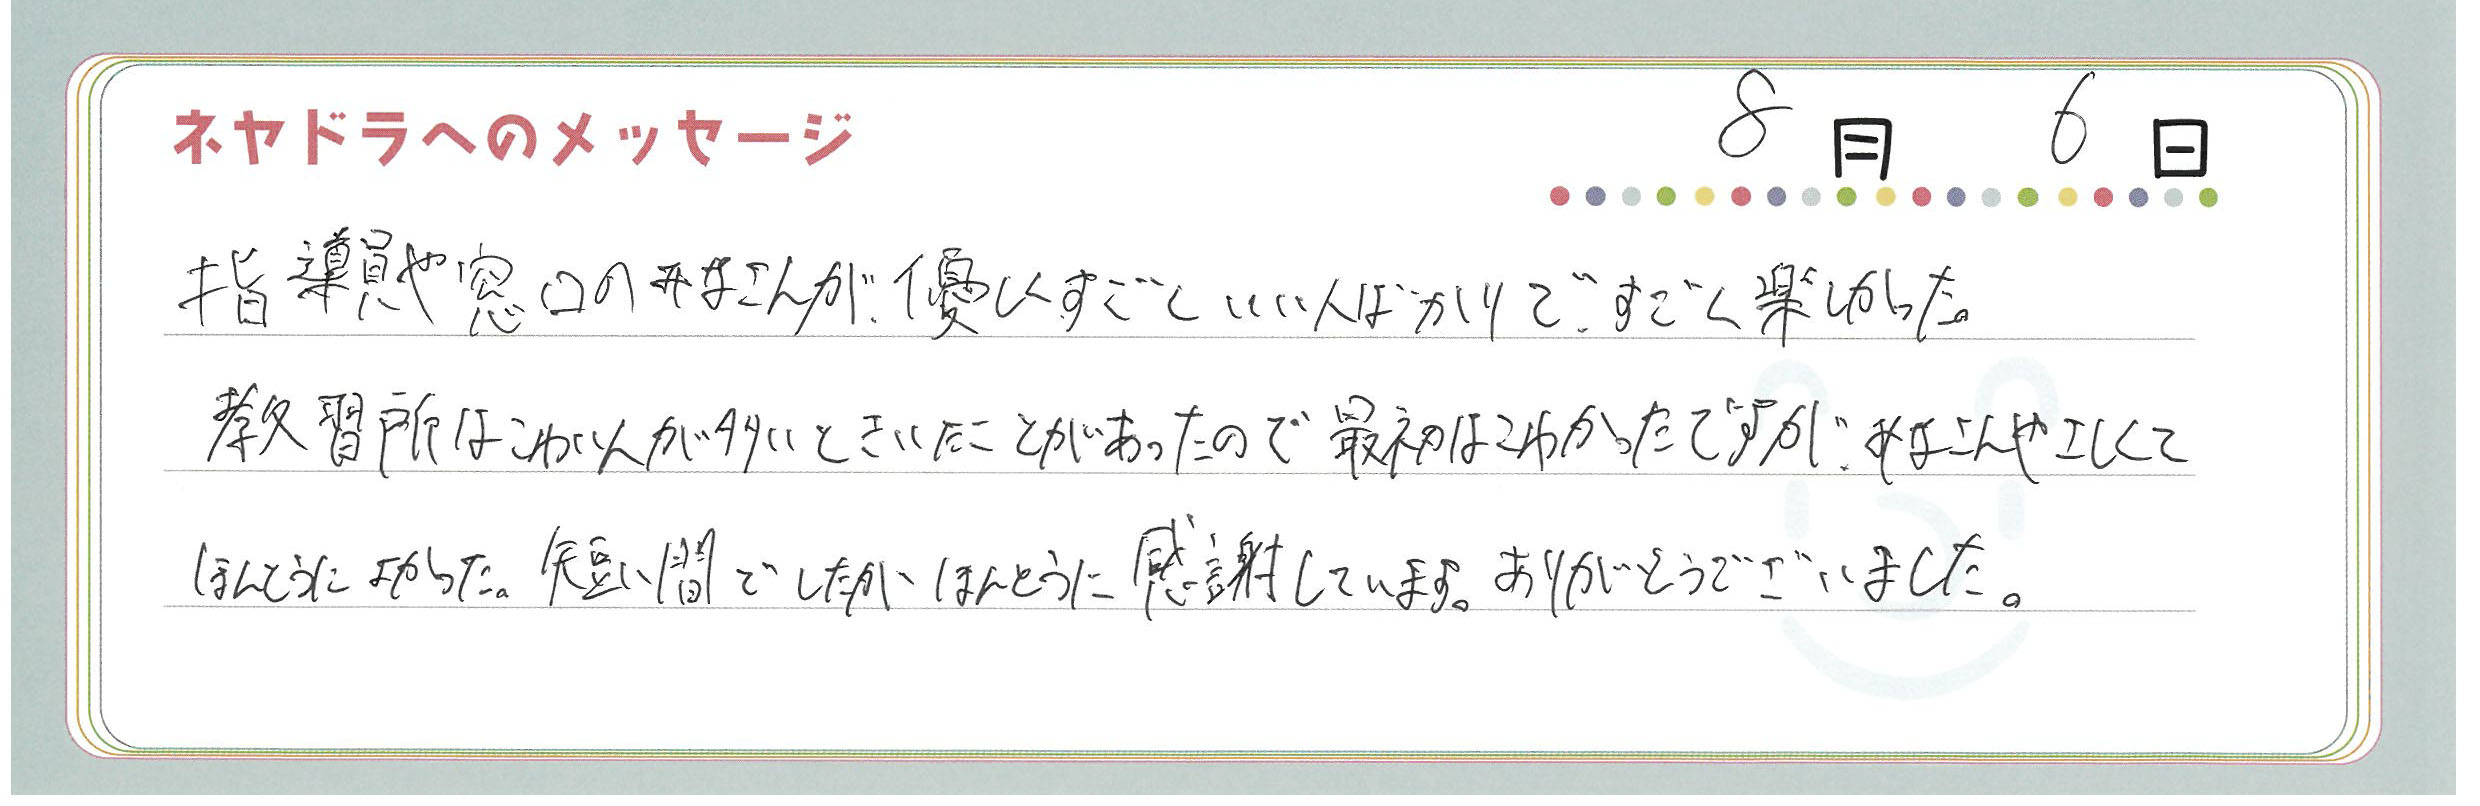 ネヤドラへのメッセージ
8月 6日
指導員や窓口のみなさんが、優しくすごくいい人ばかりで、すごく楽しかった。
教習所はこわい人が多いときいたことがあったので最初はこわかったですが、みなさんやさしくて
ほんとうによかった。短い間でしたがほんとうに感謝しています。ありがとうございました。